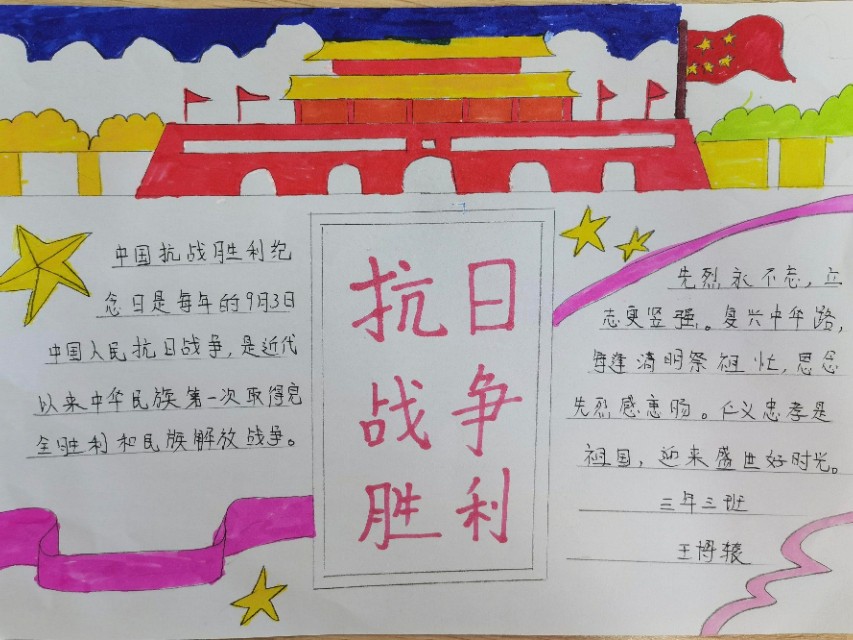 中国抗战胜利纪
念日是每年的9月3日
中国人民抗日战争,是近代
以来中华民族第一次取得完
全胜利和民族解放战争。
抗日
战争
胜利
先烈永不忘,立
志更坚强。复兴中华路,
每逢清明祭祖忙,思念
先烈感惠肠。仁义忠孝是
祖国,迎来盛世好时光。
三年三班
王博